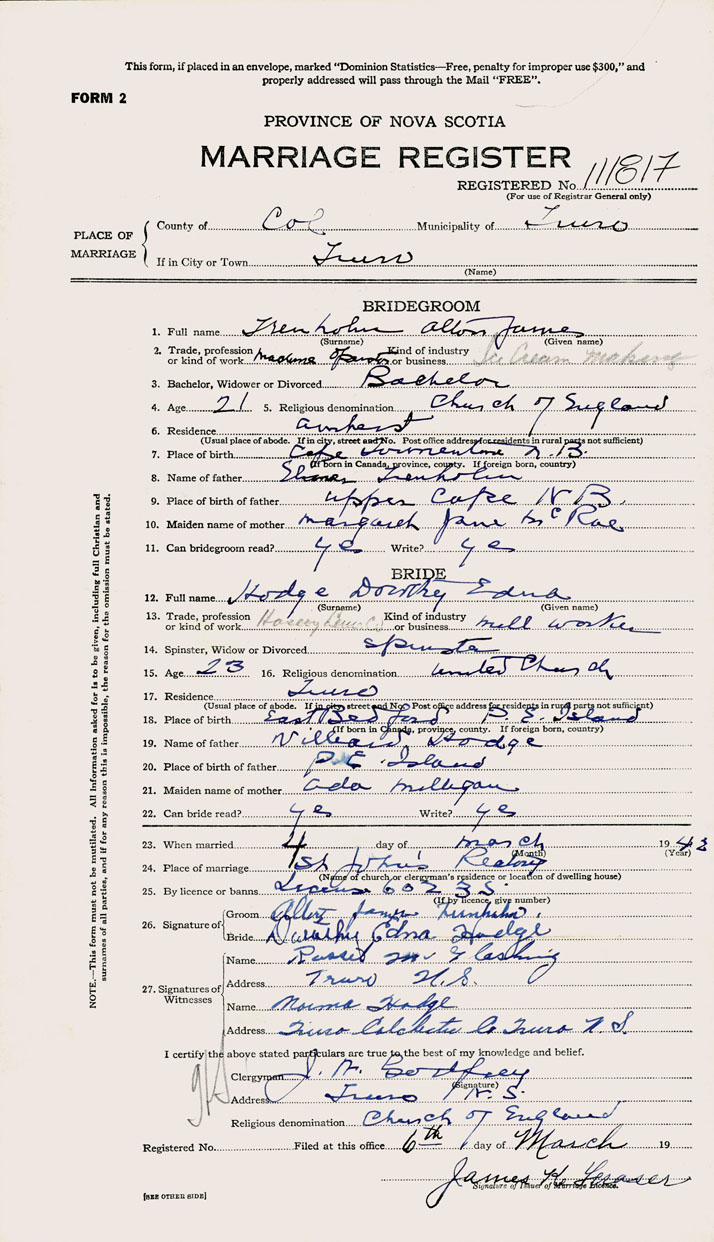 This form, if placed in an envelope, marked "Dominion Statistics—Free, penalty for improper use $300," and
properly addressed will pass through the Mail "FREE".
FORM 2
PROVINCE OF NOVA SCOTIA
MARRIAGE REGISTER
REGISTERED No. 111817
(For use of Registrar General only)
PLACE OF MARRIAGE
County of Col Municipality of Truro
If in City or Town Truro
(Name)
BRIDEGROOM
1. Full name Trenholm Alton James
(Surname) (Given name)
2. Trade, profession or kind of work Machine Kind of industry or business Ice Cream making
3. Bachelor, Widower or Divorced Bachelor
4. Age 21 5. Religious denomination Church of England
6. Residence Amherst
(Usual place of abode. If in city, street and No. Post office address for residents in rural parts not sufficient)
7. Place of birth Cape Tormentine N.B.
(If born in Canada, province, county. If foreign born, country)
8. Name of father Trenholm
9. Place of birth of father Upper Cape N.B.
10. Maiden name of mother Margaret Jane McRae
11. Can bridegroom read? yes Write? yes
BRIDE
12. Full name Hodge Dorothy Edna
(Surname) (Given name)
13. Trade, profession or kind of work Kind of industry or business mill worker
14. Spinster, Widow or Divorced Spinster
15. Age 23 16. Religious denomination United Church
17. Residence Truro
(Usual place of abode. If in city, street and No. Post office address for residents in rural parts not sufficient)
18. Place of birth East Bedford P.E. Island
(If born in Canada, province, county. If foreign born, country)
19. Name of father Hodge
20. Place of birth of father P.E. Island
21. Maiden name of mother Ada Milligan
22. Can bride read? yes Write? yes
23. When married 4 day of March 1943
(Month) (Year)
24. Place of marriage St John's Rectory
(Name of church or clergyman's residence or location of dwelling house)
25. By licence or banns License 60235
(If by licence, give number)
26. Signature of
Groom James Trenholm
Bride Dorothy Edna Hodge
27. Signatures of Witnesses
Name Mc Glashing
Address Truro N.S.
Name Norma Hodge
Address Truro Colchester Co Truro N S.
I certify the above stated particulars are true to the best of my knowledge and belief.
Clergyman J. A. Godfrey
(Signature)
Address Truro N.S.
Religious denomination Church of England
Registered No. Filed at this office 6th day of March 19
James K. Fraser
Signature of Issuer of Marriage Licence.
[SEE OTHER SIDE]
NOTE.—This form must not be mutilated. All information asked for is to be given, including full Christian and
surnames of all parties, and if for any reason this is impossible, the reason for the omission must be stated.